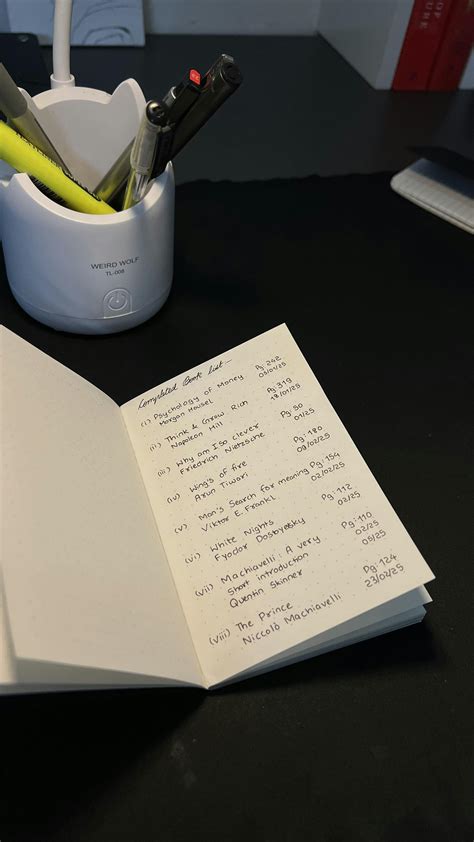 OF
URE
WEIRD WOLF
TL-008
Completed Book list :-
(i) Psychology of Money Pg: 242
Morgan Housel 05/01/25
(ii) Think & Grow Rich Pg: 319
Napoleon Hill 18/01/25
(iii) Why am I so clever Pg: 50
Friedrich Nietzsche 01/25
(iv) Wing's of fire Pg: 180
Arun Tiwari 09/02/25
(v) Man's Search for meaning Pg: 154
Viktor E. Frankl 02/02/25
(vi) White Nights Pg: 112
Fyodor Dostoyevsky 02/25
(vii) Machiavelli: A very Pg: 110
Short introduction 05/25
Quentin Skinner
(viii) The Prince Pg: 124
Niccolò Machiavelli 23/02/25